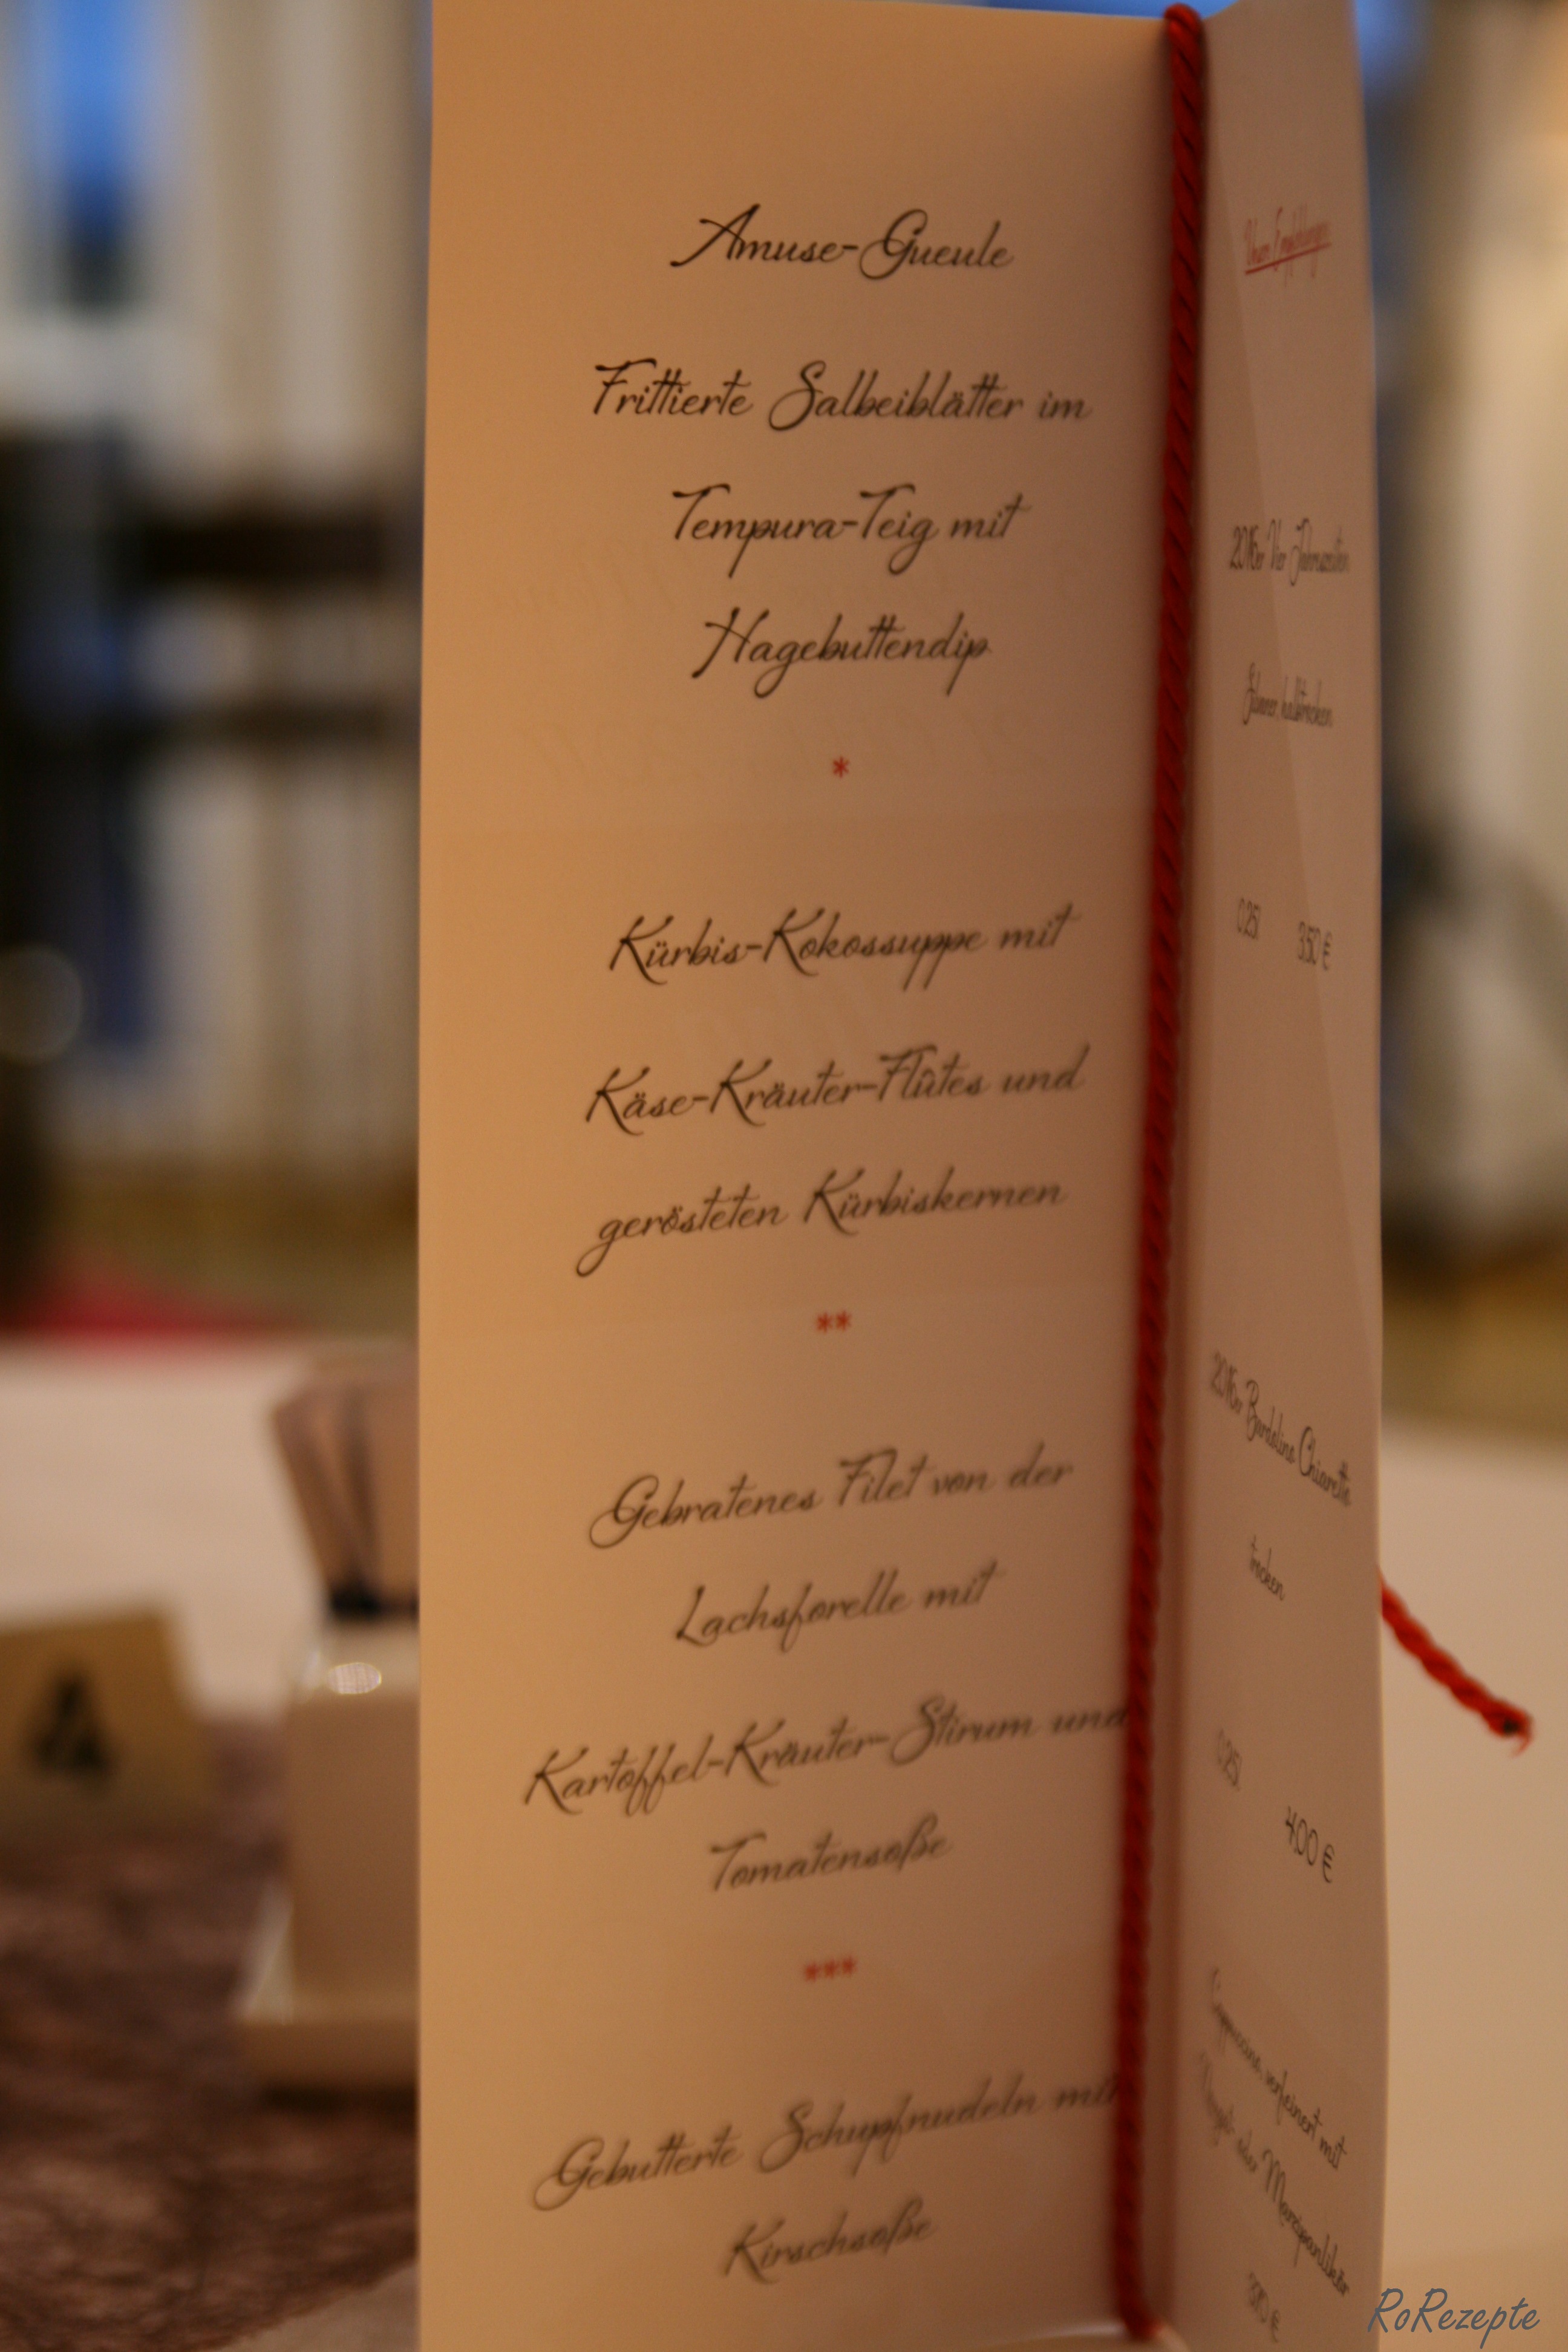 Amuse-Gueule
Frittierte Salbeiblätter im
Tempura-Teig mit
Hagebuttendip
*
Kürbis-Kokossuppe mit
Käse-Kräuter-Flûtes und
gerösteten Kürbiskernen
**
Gebratenes Filet von der
Lachsforelle mit
Kartoffel-Kräuter-Stirum und
Tomatensoße
***
Gebutterte Schupfnudeln mit
Kirschsoße
Unsere Empfehlungen
2015er Vier Jahreszeiten
halbtrocken
0,25l 3,50 €
2015er Bardolino Chiaretto
trocken
0,25l
4,00 €
Cappuccino, verfeinert mit
Nougat- oder Marzipanlikör
4
RoRezepte